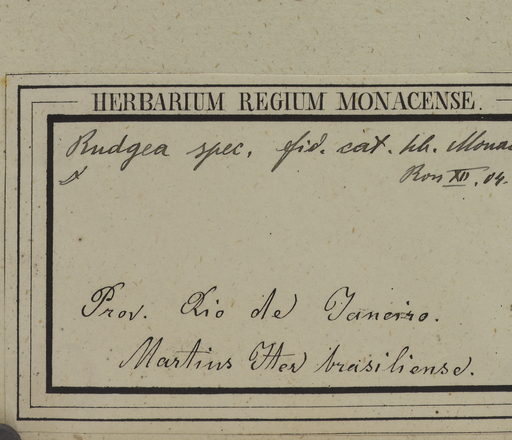 HERBARIUM REGIUM MONACENSE.
Rudgea spec. fid. cat. hb. Monac
Ross XII. 04.
Prov. Rio de Janeiro.
Martius Iter brasiliense.